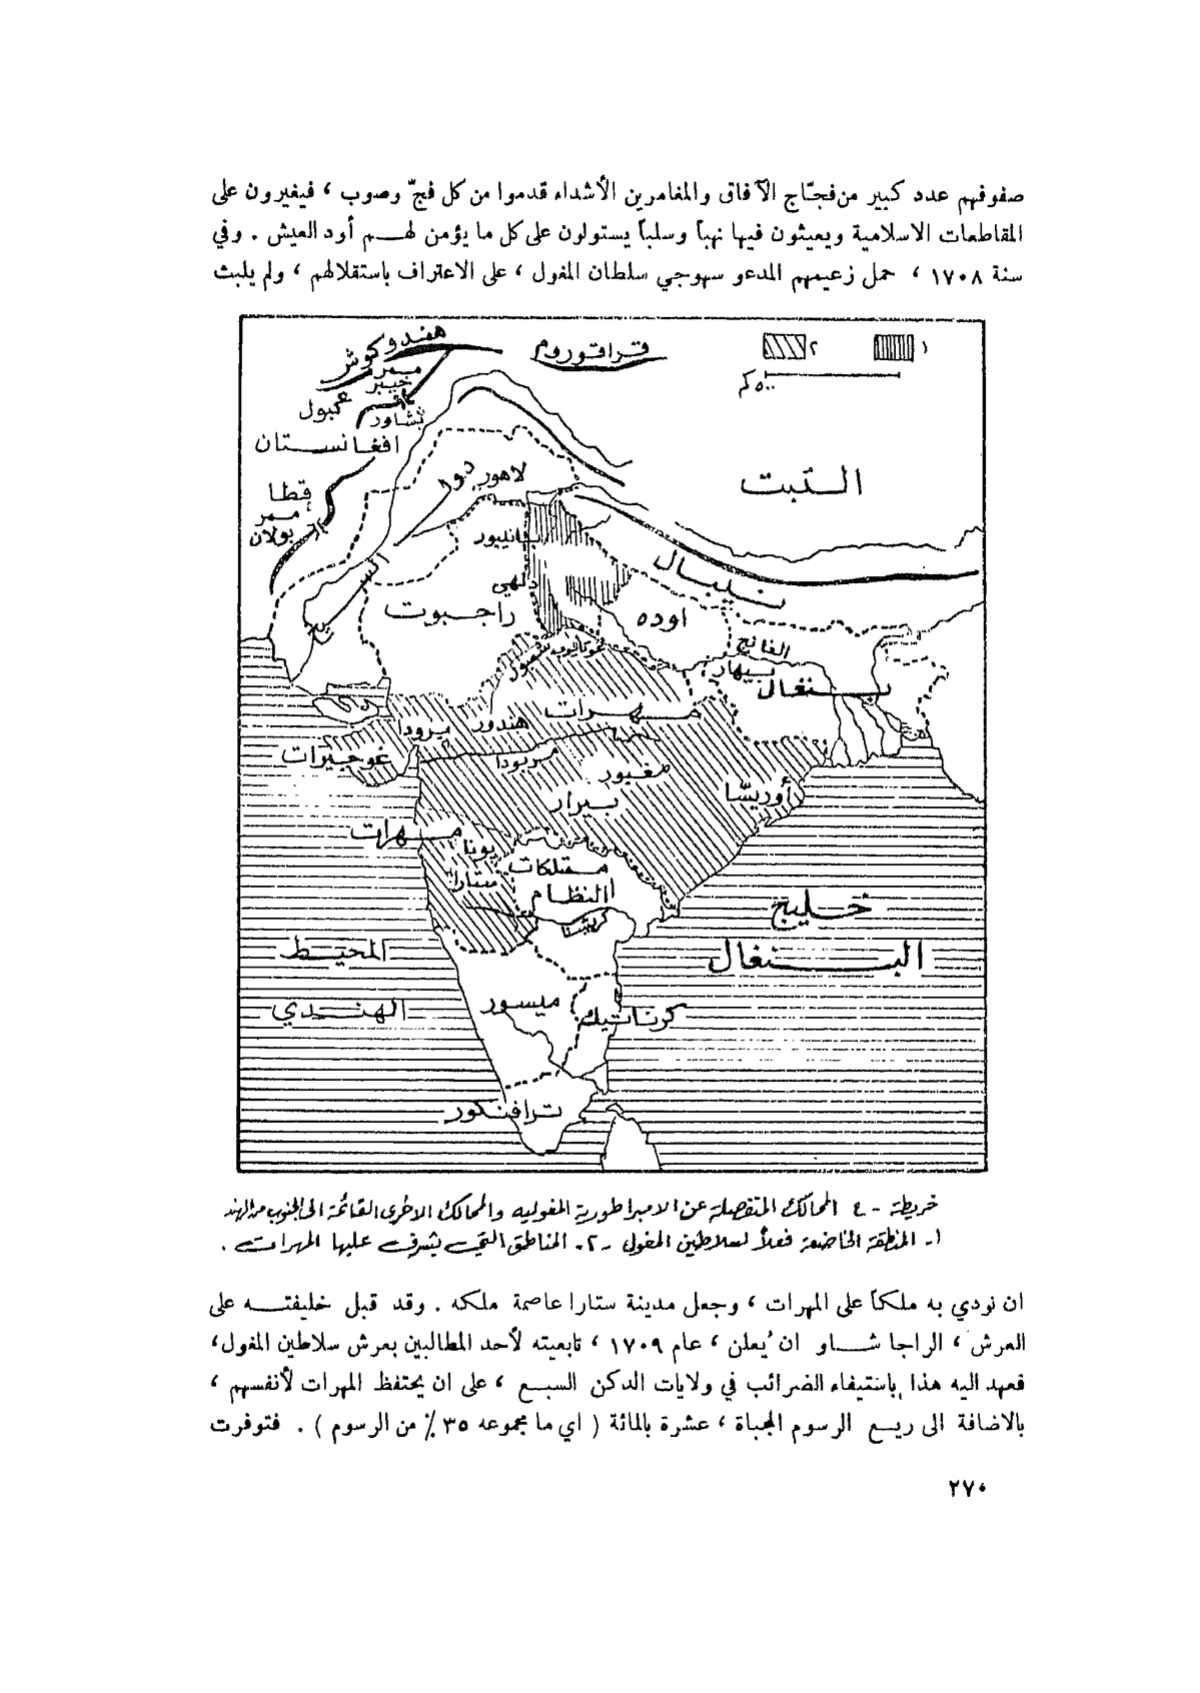 صفوفهم عدد كبير من فجّاج الآفاق والمغامرين الأشداء قدموا من كل فجّ وصوب ، فيغيرون على
المقاطعات الاسلامية ويعيثون فيها نهباً وسلباً يستولون على كل ما يؤمن لهم أود العيش . وفي
سنة ١٧٠٨ ، حمل زعيمهم المدعو سهوجي سلطان المغول ، على الاعتراف باستقلالهم ، ولم يلبث
١
٢
٥٠٠ كم
هندوكوش
قراقوروم
ممر
خيبر
كبول
بشاور
افغانستان
لاهور
التبت
قطا
ممر
بولان
بانيبور
السند
نيبال
دلهي
راجبوت
اوده
الغانج
بيهار
بنغال
مهرات
هندور
برودا
غوجيرات
نربودا
مغبور
بيرار
أوريسّا
مهرات
بونا
ستارا
ممتلكات
النظام
كريشنا
خليج
البنغال
المحيط
الهندي
ميسور
كرناتيك
ترافنكور
خريطة - ٤ الممالك المنفصلة عن الامبراطورية المغولية والممالك الاخرى القائمة الى الجنوب من الهند
١- المنطقة الخاضعة فعلاً لسلاطين المغول - ٢- المناطق التي يشرف عليها المهرات .
ان نودي به ملكاً على المهرات ، وجعل مدينة ستارا عاصمة ملكه . وقد قبل خليفته على
العرش ، الراجا شاو ان يُعلن ، عام ١٧٠٩ ، تابعيته لأحد المطالبين بعرش سلاطين المغول،
فعهد اليه هذا باستيفاء الضرائب في ولايات الدكن السبع ، على ان يحتفظ المهرات لأنفسهم ،
بالاضافة الى ربع الرسوم المجباة ، عشرة بالمائة ( اي ما مجموعه ٣٥ ٪ من الرسوم ) . فتوفرت
٢٧٠